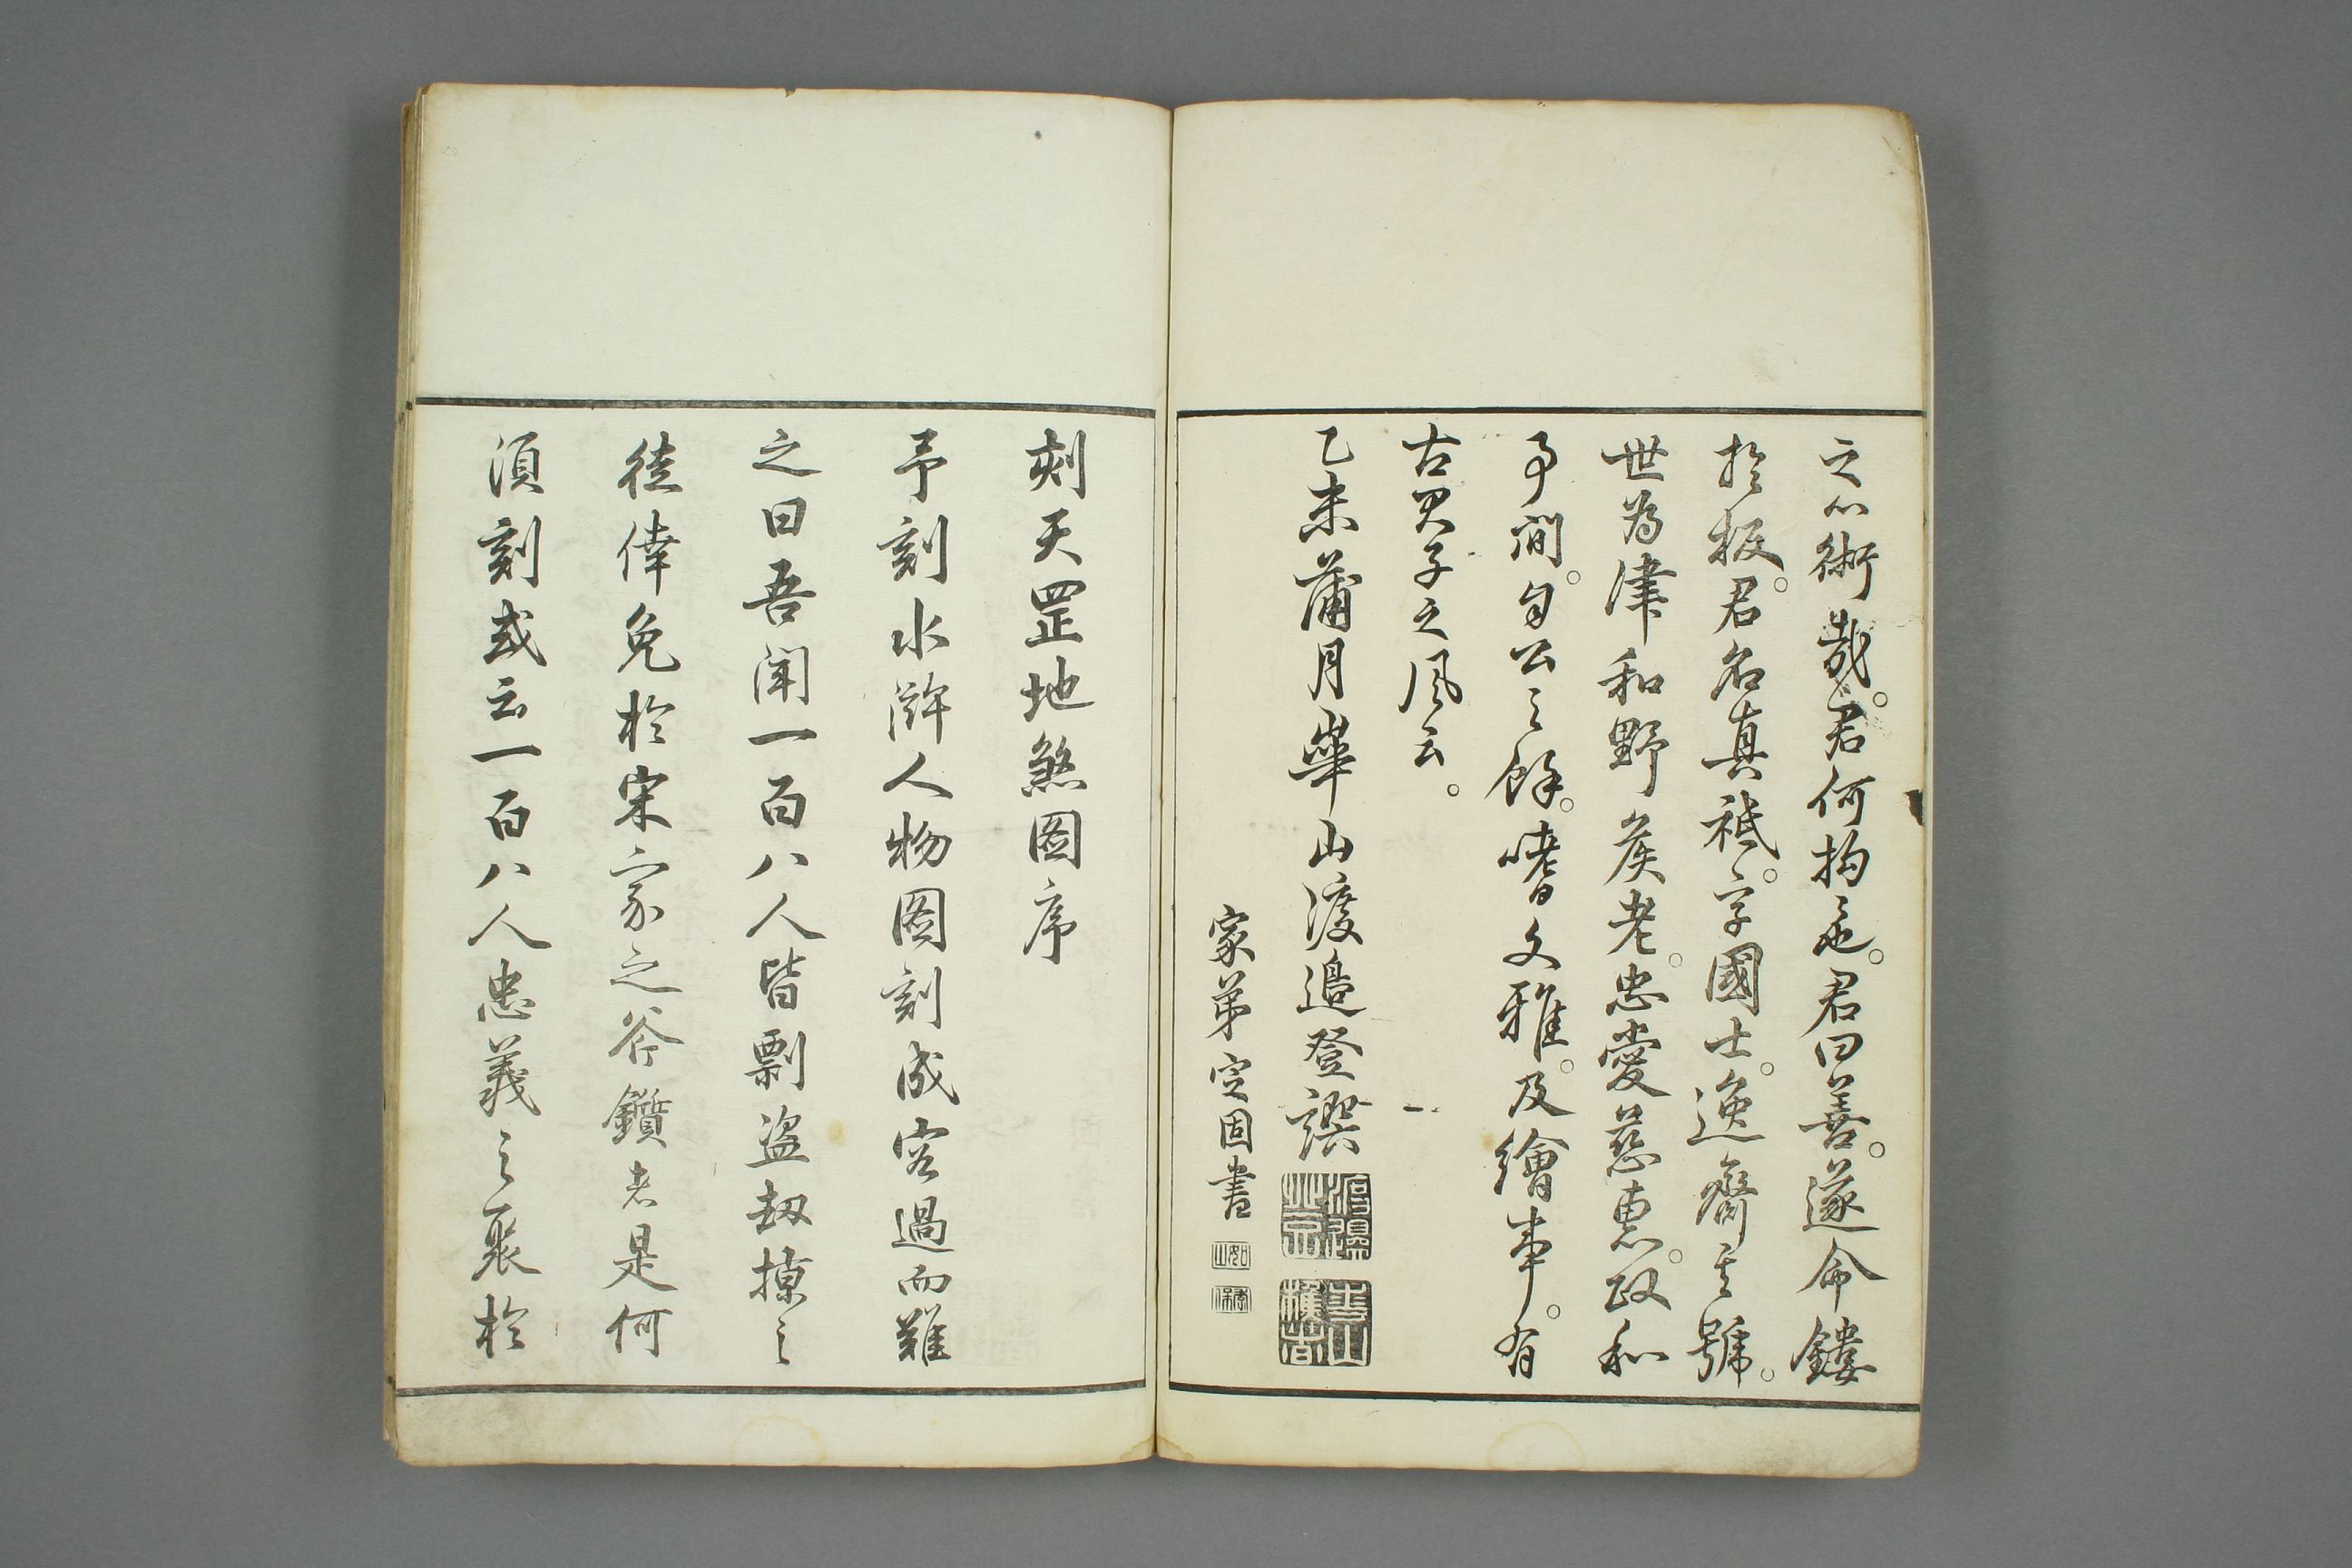 之心術哉。君何拘之也。君曰善。遂命鏤
於板。君名真祇。字國士。逸齋其號。
世為津和野矦老。忠愛慈惠。政和
事閒。自公之餘。嗜文雅。及繪事。有
古君子之風云。
乙未蒲月崋山渡邉登譔
家弟定固書
如山
刻天罡地煞图序
予刻水滸人物图刻成客過而難
之曰吾聞一百八人皆剽盗劫掠之
徒倖免於宋家之斧鑕者是何
須刻或云一百八人忠義之聚於